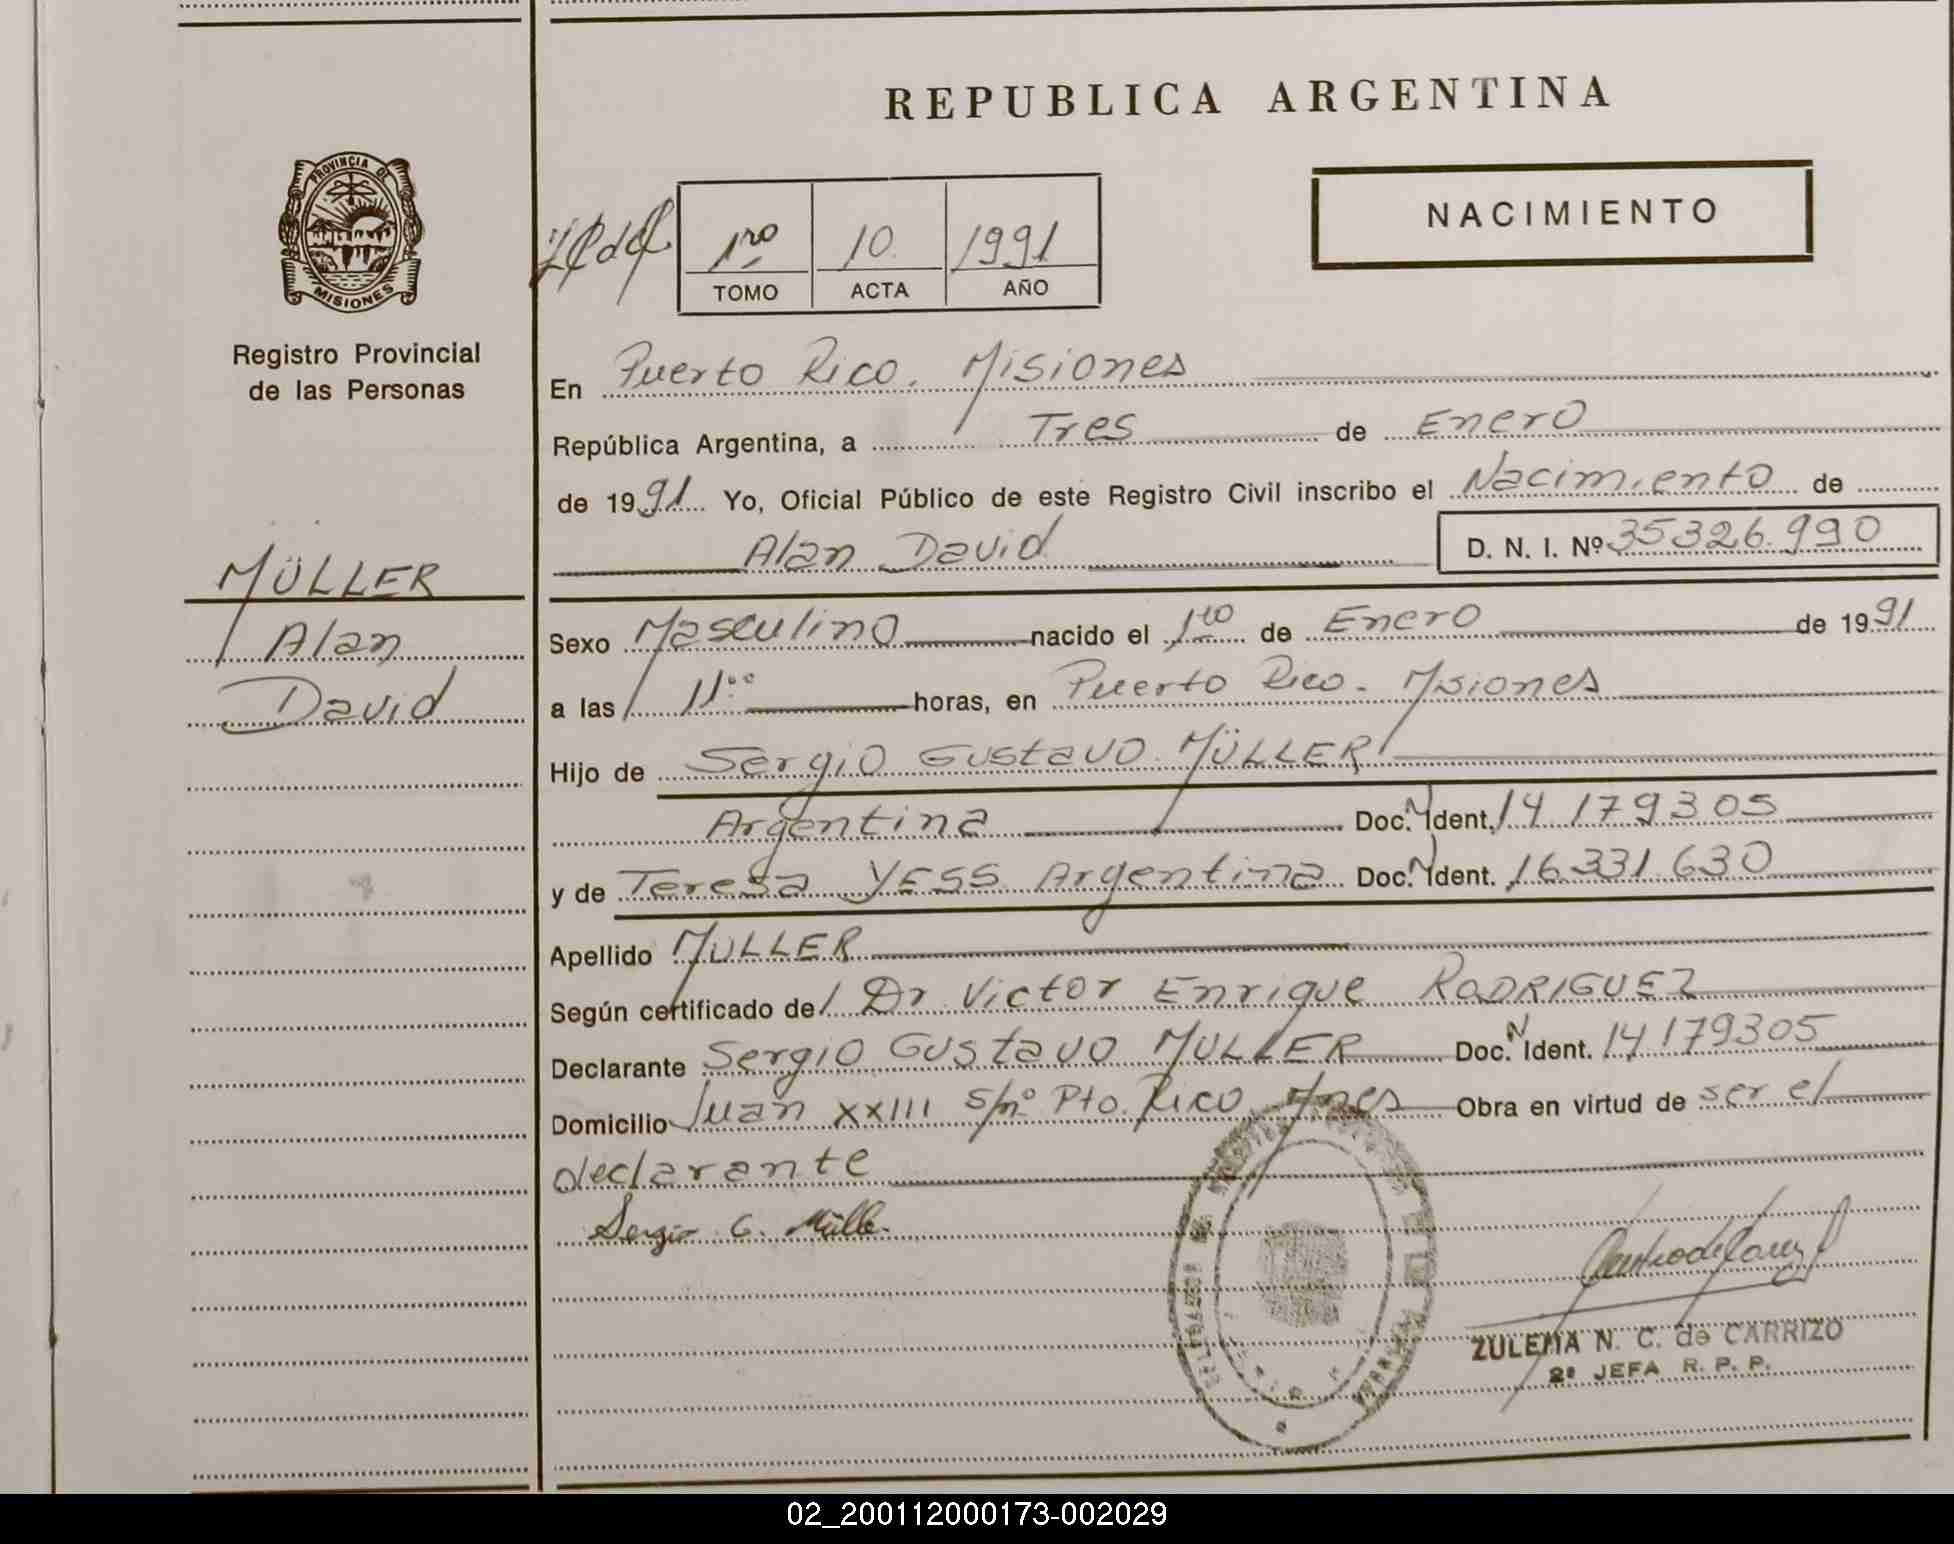 REPUBLICA ARGENTINA
PROVINCIA DE
MISIONES
Registro Provincial
de las Personas
1ro 10 1991
TOMO ACTA AÑO
NACIMIENTO
En Puerto Rico. Misiones
República Argentina, a Tres de Enero
de 1991 Yo, Oficial Público de este Registro Civil inscribo el Nacimiento de
Alan David D. N. I. Nº 35326.990
MÜLLER
Alan
David
Sexo Masculino nacido el 1ro de Enero de 1991
a las 11:00 horas, en Puerto Rico - Misiones
Hijo de Sergio Gustavo MÜLLER
Argentina Doc. N Ident. 14.179305
y de Teresa YESS Argentina Doc. N Ident. 16.331.630
Apellido MÜLLER
Según certificado del Dr Victor Enrique RODRIGUEZ
Declarante Sergio Gustavo MULLER Doc. N Ident. 14179305
Domicilio Juan XXIII s/nº Pto. Rico Mnes Obra en virtud de ser el
declarante
Sergio G. Müller
ZULEMA N. C. de CARRIZO
2ª JEFA R. P. P.
02_200112000173-002029